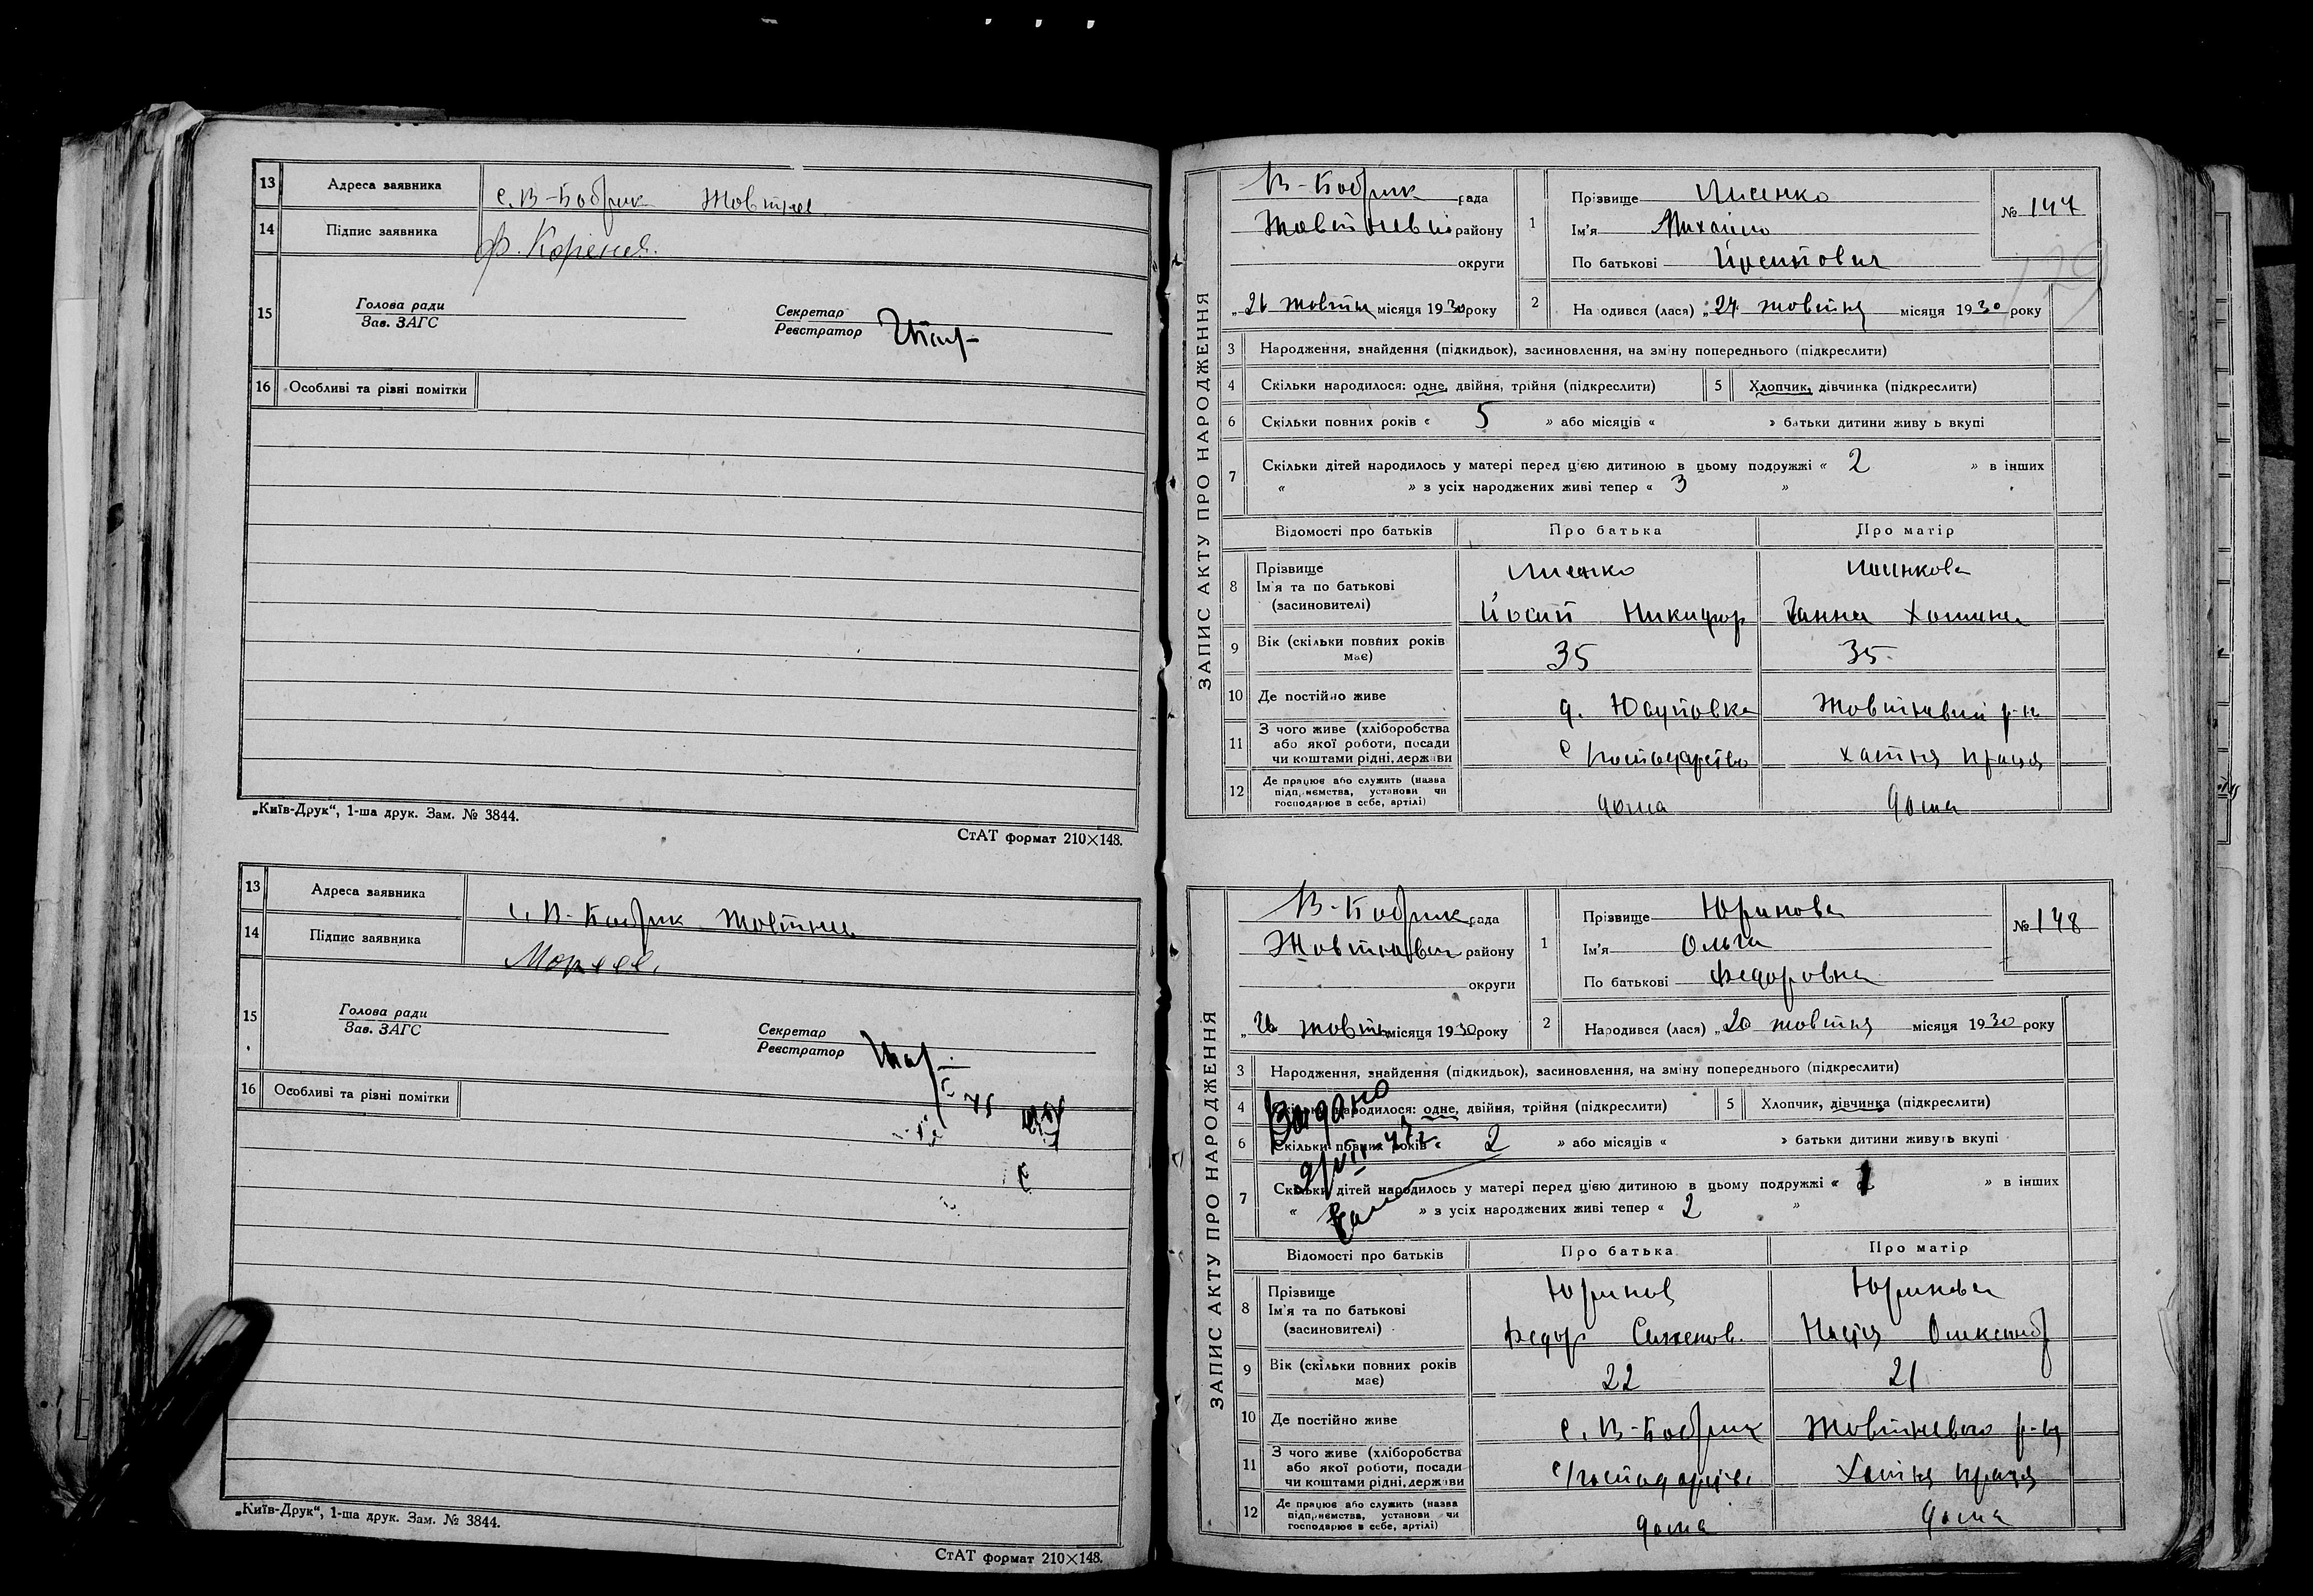 13 Адреса заявника с. В-Бобрик Жовтнев
14 Підпис заявника Ф. Корєнєв.
15 Голова ради
Зав. ЗАГС
Секретар
Реєстратор
16 Особливі та різні помітки
„Київ-Друк“, 1-ша друк. Зам. № 3844.
СтАТ формат 210×148.
13 Адреса заявника с. В-Бобрик Жовтнев
14 Підпис заявника
15 Голова ради
Зав. ЗАГС
Секретар
Реєстратор
16 Особливі та різні помітки
„Київ-Друк“, 1-ша друк. Зам. № 3844.
СтАТ формат 210×148.
ЗАПИС АКТУ ПРО НАРОДЖЕННЯ
В-Бобрик рада
Жовтневий району
округи
„21 жовтня місяця 1930 року
1 Прізвище Лисенко
Ім'я Михайло
По батькові Йосипович
№ 147
129
2 На одився (лася) „ 24 жовтня місяця 1930 року
3 Народження, знайдення (підкидьок), засиновлення, на зміну попереднього (підкреслити)
4 Скільки народилося: одне, двійня, трійня (підкреслити)
5 Хлопчик, дівчинка (підкреслити)
6 Скільки повних років « 5 » або місяців « » батьки дитини живу ь вкупі
7 Скільки дітей народилось у матері перед цією дитиною в цьому подружжі « 2 » в інших
« » з усіх народжених живі тепер « 3 »
Відомості про батьків Про батька Про матір
8 Прізвище
Ім'я та по батькові
(засиновителі)
Лисенко
Йосип Никифор
Лисенкова
Ганна Хомина
9 Вік (скільки повних років має) 35 35
10 Де постійно живе д. Юсуповка Жовтневий р-н
11 З чого живе (хліборобства
або якої роботи, посади
чи коштами рідні, держави
с господарство хатня праця
12 Де працює або служить (назва
підприємства, установи чи
господарює в себе, артілі)
дома дома
ЗАПИС АКТУ ПРО НАРОДЖЕННЯ
В-Бобрик рада
Жовтневий району
округи
„ 26 жовтня місяця 1930 року
1 Прізвище Юринова
Ім'я Ольга
По батькові Федоровна
№ 148
2 Народився (лася) „ 20 жовтня місяця 1930 року
3 Народження, знайдення (підкидьок), засиновлення, на зміну попереднього (підкреслити)
4 Скільки народилося: одне, двійня, трійня (підкреслити)
5 Хлопчик, дівчинка (підкреслити)
6 Скільки повних років « 2 » або місяців « » батьки дитини живуть вкупі
7 Скільки дітей народилось у матері перед цією дитиною в цьому подружжі « 1 » в інших
« » з усіх народжених живі тепер « 2 »
Відомості про батьків Про батька Про матір
8 Прізвище
Ім'я та по батькові
(засиновителі)
Юринов
Федор Семенов.
Юринова
Надія Олександ
9 Вік (скільки повних років має) 22 21
10 Де постійно живе с. В-Бобрик Жовтневого р-ну
11 З чого живе (хліборобства
або якої роботи, посади
чи коштами рідні, держави
с господарств. Хатня праця
12 Де працює або служить (назва
підприємства, установи чи
господарює в себе, артілі)
дома дома